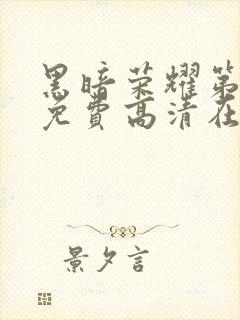 黑暗荣耀第
免費高清在
景夕言